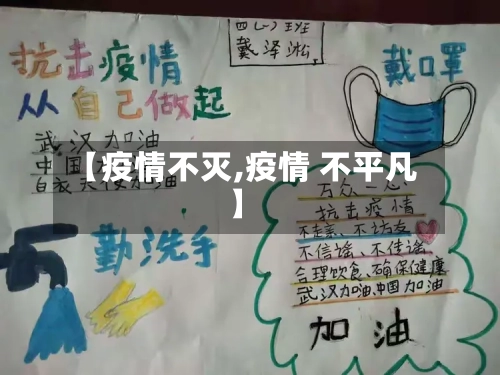 四(一)班
戴泽淞
抗击疫情
从自己做起
戴口罩
武汉加油
中国加油
白衣天使加油
【疫情不灭,疫情 不平凡
】
勤洗手
万众一心
抗击疫情
不走亲、不访友
不信谣、不传谣
合理饮食、确保健康
武汉加油、中国加油
加油